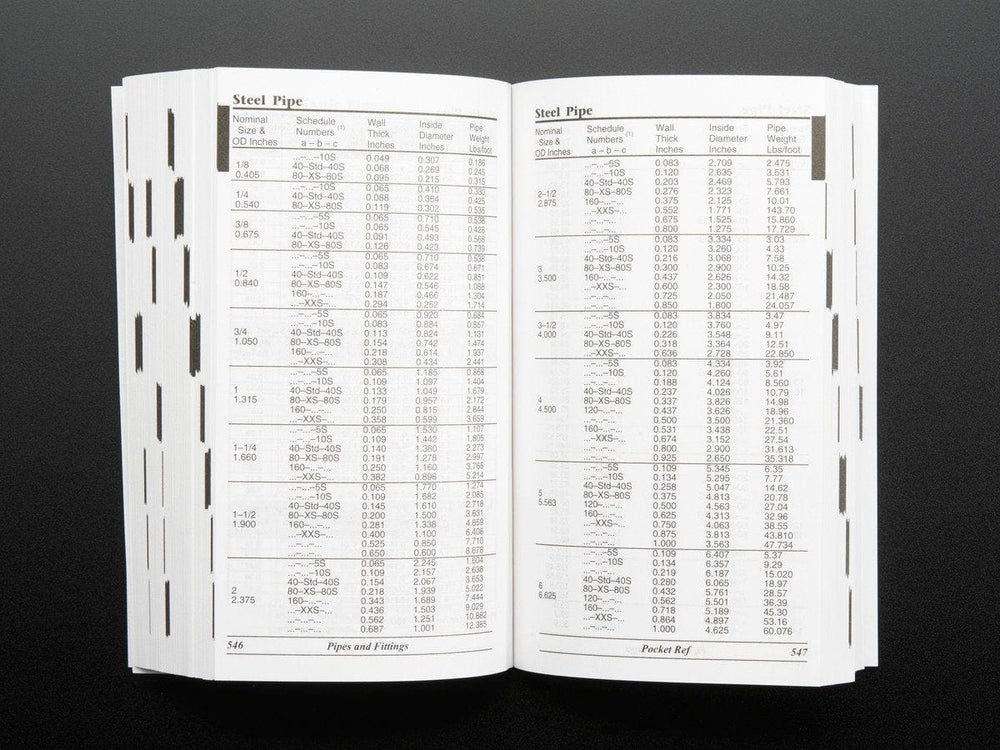 Steel Pipe
Nominal Size & OD Inches Schedule Numbers (1) a – b – c Wall Thick Inches Inside Diameter Inches Pipe Weight Lbs/foot
...–...–10S 0.049 0.307 0.186
1/8 40–Std–40S 0.068 0.269 0.245
0.405 80–XS–80S 0.095 0.215 0.315
...–...–10S 0.065 0.410 0.330
1/4 40–Std–40S 0.088 0.364 0.425
0.540 80–XS–80S 0.119 0.302 0.535
...–...–5S 0.065 0.710 0.538
3/8 ...–...–10S 0.065 0.545 0.426
0.675 40–Std–40S 0.091 0.493 0.568
80–XS–80S 0.126 0.423 0.739
...–...–5S 0.065 0.710 0.538
...–...–10S 0.083 0.674 0.671
1/2 40–Std–40S 0.109 0.622 0.851
0.840 80–XS–80S 0.147 0.546 1.088
160–...–... 0.187 0.466 1.304
...–XXS–... 0.294 0.252 1.714
...–...–5S 0.065 0.920 0.684
...–...–10S 0.083 0.884 0.857
3/4 40–Std–40S 0.113 0.824 1.131
1.050 80–XS–80S 0.154 0.742 1.474
160–...–... 0.218 0.614 1.937
...–XXS–... 0.308 0.434 2.441
...–...–5S 0.065 1.185 0.868
...–...–10S 0.109 1.097 1.404
1 40–Std–40S 0.133 1.049 1.679
1.315 80–XS–80S 0.179 0.957 2.172
160–...–... 0.250 0.815 2.844
...–XXS–... 0.358 0.599 3.659
...–...–5S 0.065 1.530 1.107
...–...–10S 0.109 1.442 1.805
1–1/4 40–Std–40S 0.140 1.380 2.273
1.660 80–XS–80S 0.191 1.278 2.997
160–...–... 0.250 1.160 3.765
...–XXS–... 0.382 0.896 5.214
...–...–5S 0.065 1.770 1.274
...–...–10S 0.109 1.682 2.085
40–Std–40S 0.145 1.610 2.718
1–1/2 80–XS–80S 0.200 1.500 3.631
1.900 160–...–... 0.281 1.338 4.859
...–XXS–... 0.400 1.100 6.408
...–...–... 0.525 0.850 7.710
...–...–... 0.650 0.600 8.678
...–...–5S 0.065 2.245 1.604
...–...–10S 0.109 2.157 2.638
40–Std–40S 0.154 2.067 3.653
2 80–XS–80S 0.218 1.939 5.022
2.375 160–...–... 0.343 1.689 7.444
...–XXS–... 0.436 1.503 9.029
...–...–... 0.562 1.251 10.882
...–...–... 0.687 1.001 12.385
546 Pipes and Fittings
Steel Pipe
Nominal Size & OD Inches Schedule Numbers (1) a – b – c Wall Thick Inches Inside Diameter Inches Pipe Weight Lbs/foot
...–...–5S 0.083 2.709 2.475
...–...–10S 0.120 2.635 3.531
40–Std–40S 0.203 2.469 5.793
2–1/2 80–XS–80S 0.276 2.323 7.661
2.875 160–...–... 0.375 2.125 10.01
...–XXS–... 0.552 1.771 143.70
...–...–... 0.675 1.525 15.860
...–...–... 0.800 1.275 17.729
...–...–5S 0.083 3.334 3.03
...–...–10S 0.120 3.260 4.33
40–Std–40S 0.216 3.068 7.58
3 80–XS–80S 0.300 2.900 10.25
3.500 160–...–... 0.437 2.626 14.32
...–XXS–... 0.600 2.300 18.58
...–...–... 0.725 2.050 21.487
...–...–... 0.850 1.800 24.057
...–...–5S 0.083 3.834 3.47
3–1/2 ...–...–10S 0.120 3.760 4.97
4.000 40–Std–40S 0.226 3.548 9.11
80–XS–80S 0.318 3.364 12.51
...–XXS–... 0.636 2.728 22.850
...–...–5S 0.083 4.334 3.92
...–...–10S 0.120 4.260 5.61
...–...–... 0.188 4.124 8.560
40–Std–40S 0.237 4.026 10.79
4 80–XS–80S 0.337 3.826 14.98
4.500 120–...–... 0.437 3.626 18.96
...–...–... 0.500 3.500 21.360
160–...–... 0.531 3.438 22.51
...–XXS–... 0.674 3.152 27.54
...–...–... 0.800 2.900 31.613
...–...–... 0.925 2.650 35.318
...–...–5S 0.109 5.345 6.35
...–...–10S 0.134 5.295 7.77
40–Std–40S 0.258 5.047 14.62
5 80–XS–80S 0.375 4.813 20.78
5.563 120–...–... 0.500 4.563 27.04
160–...–... 0.625 4.313 32.96
...–XXS–... 0.750 4.063 38.55
...–...–... 0.875 3.813 43.810
...–...–... 1.000 3.563 47.734
...–...–5S 0.109 6.407 5.37
...–...–10S 0.134 6.357 9.29
...–...–... 0.219 6.187 15.020
40–Std–40S 0.280 6.065 18.97
6 80–XS–80S 0.432 5.761 28.57
6.625 120–...–... 0.562 5.501 36.39
160–...–... 0.718 5.189 45.30
...–XXS–... 0.864 4.897 53.16
...–...–... 1.000 4.625 60.076
Pocket Ref 547